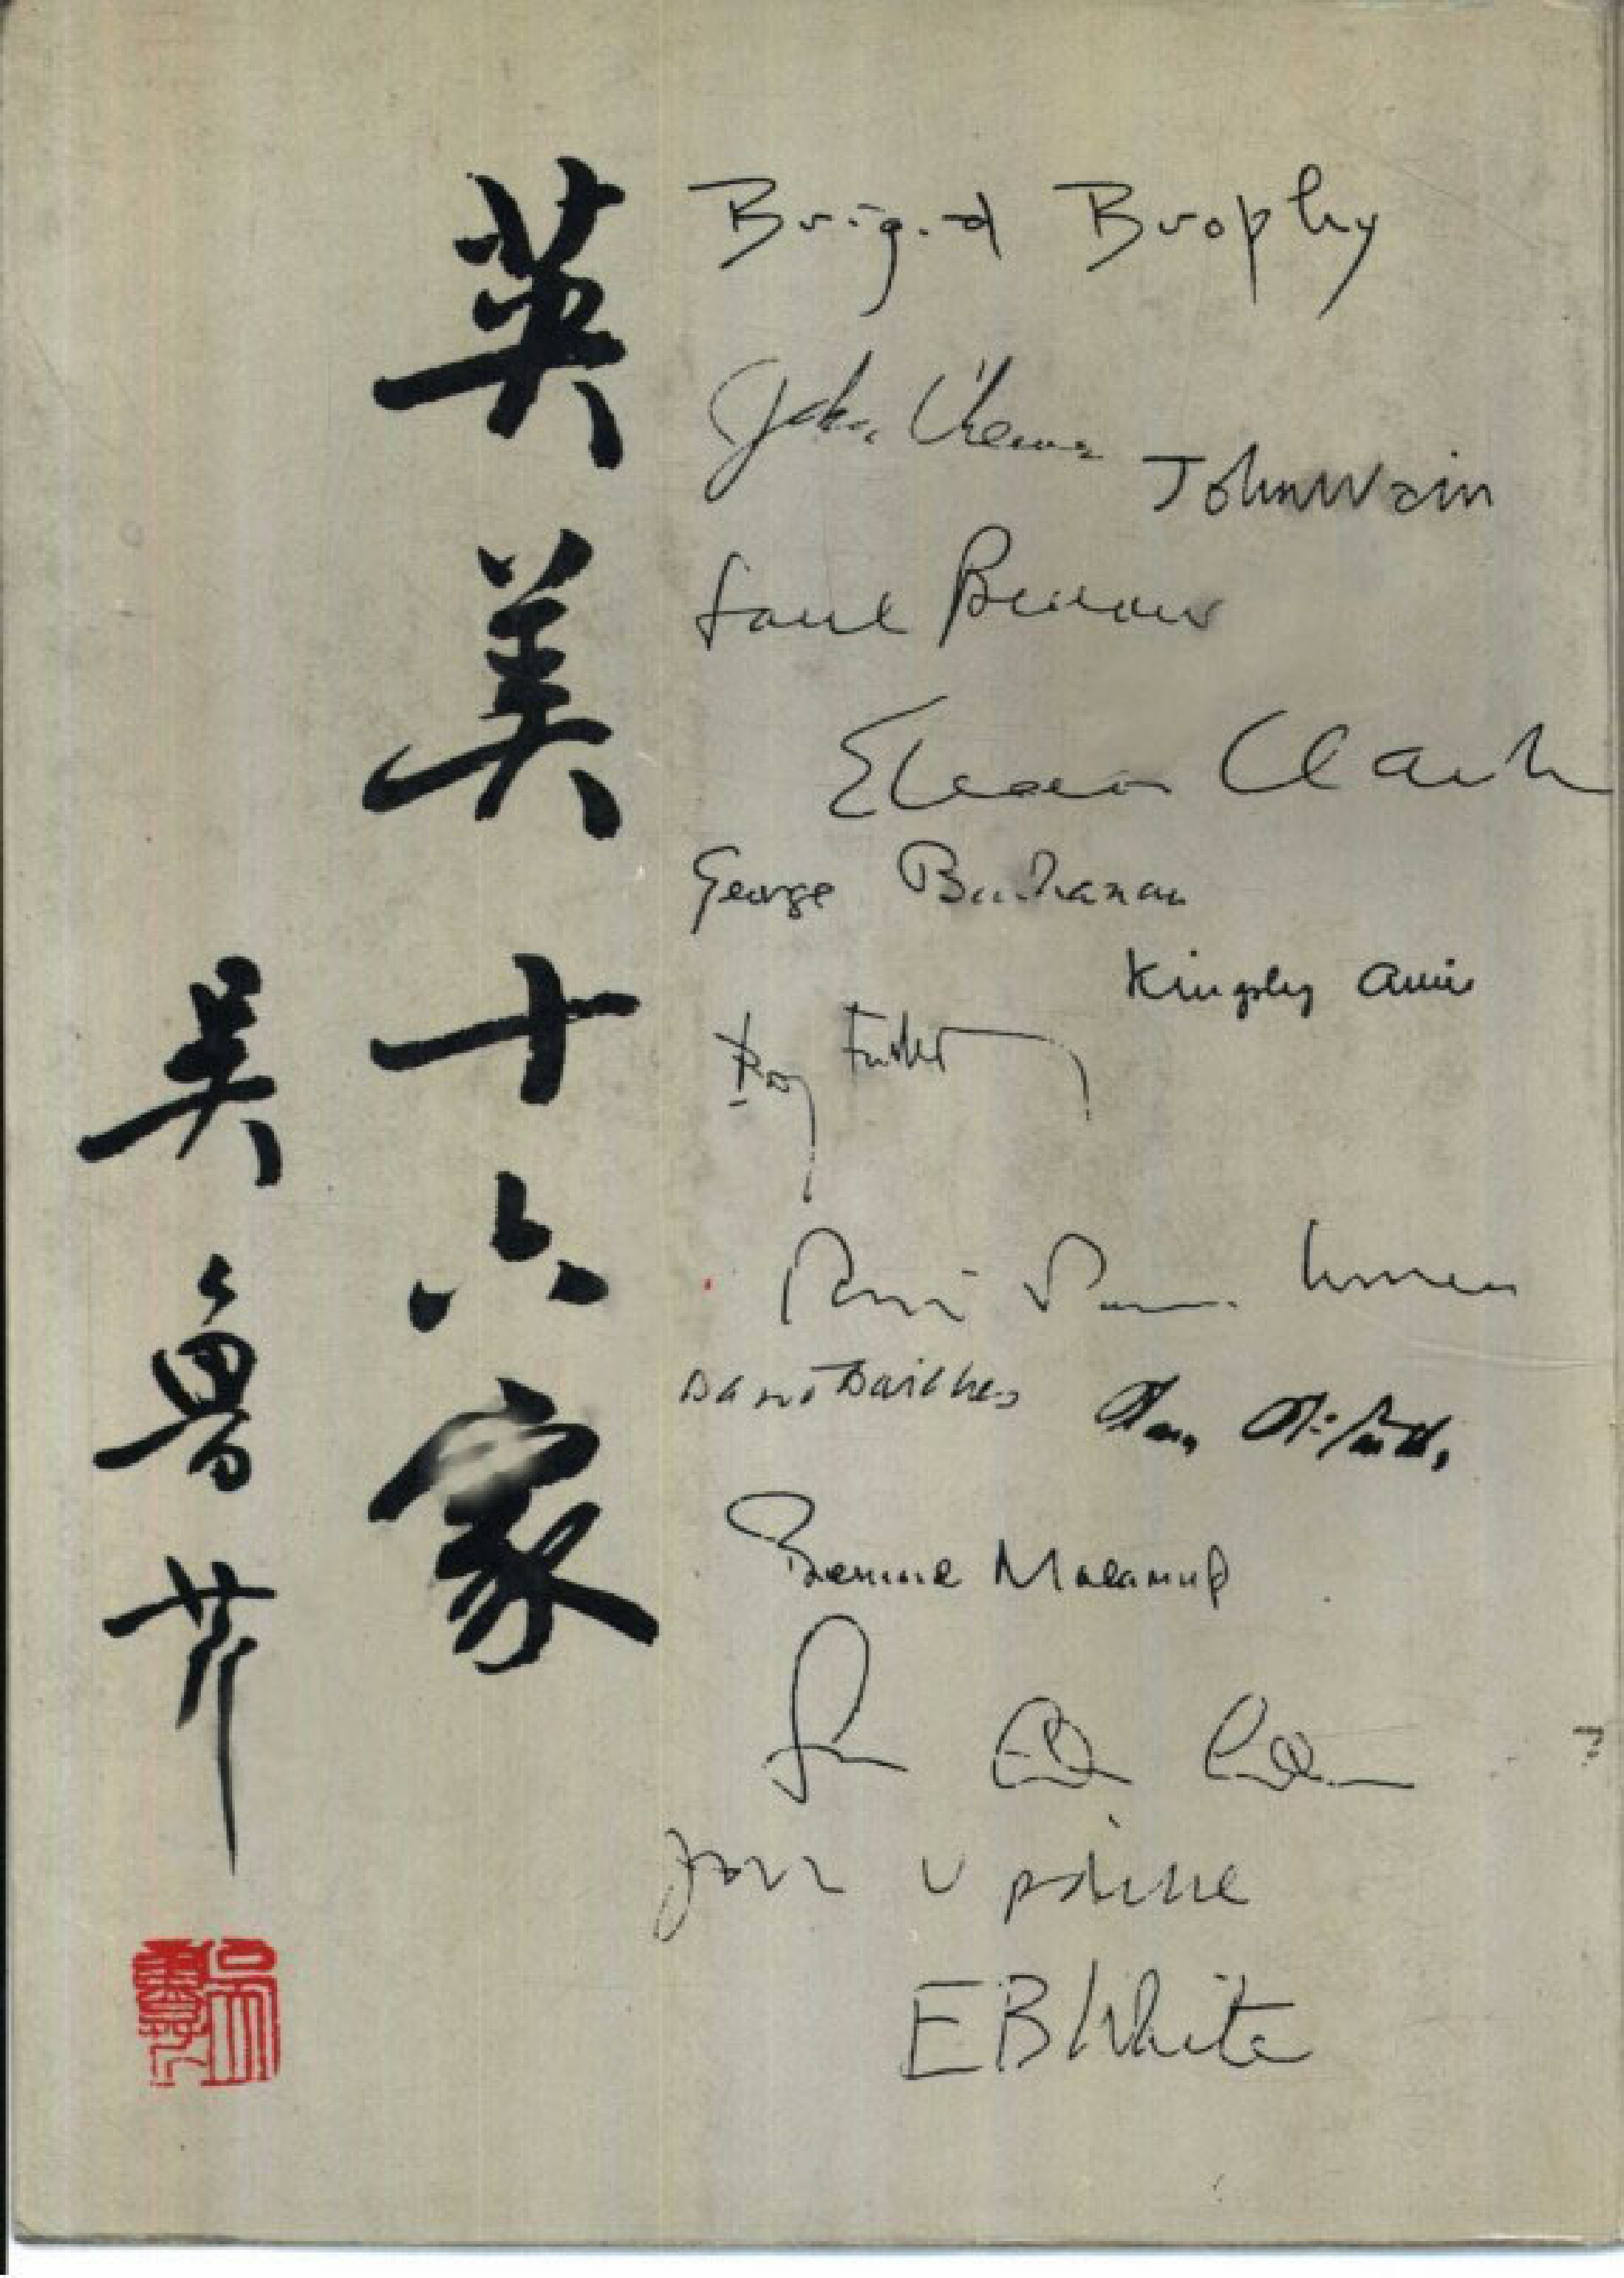 英美十六家
吳魯芹
Brigid Brophy
John Cheever
John Wain
Saul Bellow
Eleanor Clark
George Buchanan
Kingsley Amis
Roy Fuller
Robert Penn Warren
David Daiches
Bernard Malamud
John Updike
E B White